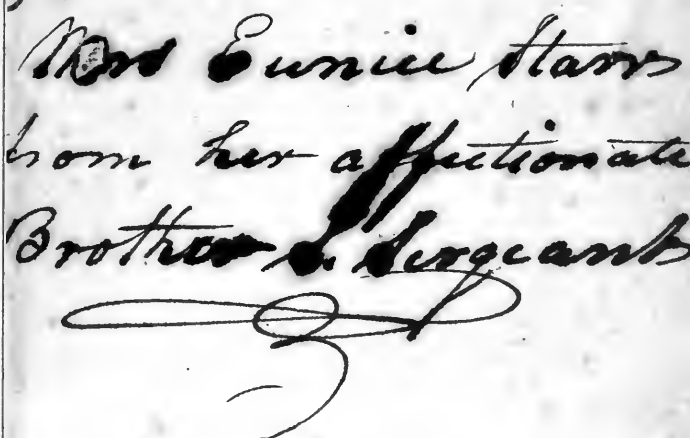 Mrs Eunice Starr
from her affectionate
Brother S. Sergeant